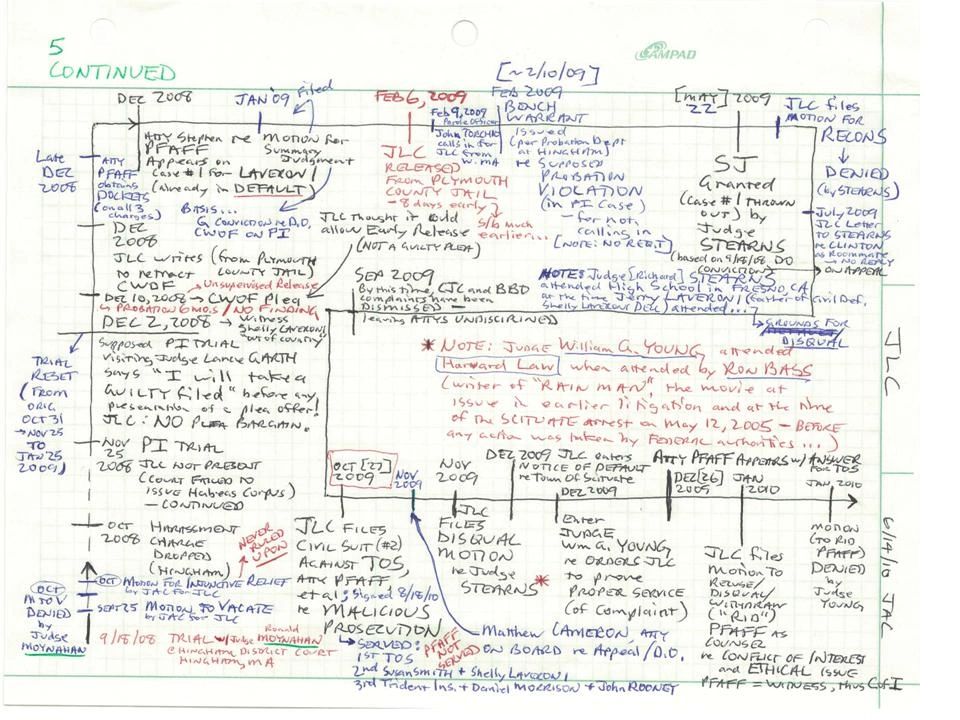 5
CONTINUED
AMPAD
[~2/10/09]
DEC 2008
JAN '09
Filed
FEB 6, 2009
Feb 9, 2009
Parole Officer
John TORCHIO
calls in for
JLC from
W. MA
FEB 2009
BENCH
WARRANT
issued
(per Probation Dept
at HINGHAM)
re SUPPOSED
PROBATION
VIOLATION
(in PI Case)
- for not
calling in
[NOTE: NO REQ'T]
[MAY] 2009
22
JLC files
MOTION FOR
RECONS
DENIED
(by STEARNS)
July 2009
JLC Letter
to STEARNS
re CLINTON
as Roommate
→ NO REPLY
ON APPEAL
Late
DEC
2008
ATTY
PFAFF
obtains
DOCKETS
(on all 3
charges)
ATTY Stephen
PFAFF
Appears on
Case #1 for LAVERONI
(already in DEFAULT)
re MOTION for
Summary
Judgment
BASIS...
CONVICTION re D.O,
CWOF ON PI
JLC
RELEASED
FROM PLYMOUTH
COUNTY JAIL
- 8 days early
S/b much
earlier...
SJ
Granted
(CASE #1 THROWN
OUT) by
Judge
STEARNS
(based on 9/18/08 DO
CONVICTION)
DEC
2008
JLC WRITES (from PLYMOUTH
COUNTY JAIL)
to retract
CWOF
JLC thought it would
allow Early Release
(NOT A GUILTY PLEA)
Unsupervised Release
DEC 10, 2008 → CWOF Plea
PROBATION 6 MOS / NO FINDING
SEP 2009
By this time, CJC and BBO
complaints have been
DISMISSED
leaving ATTYS UNDISCIPLINED
NOTE: Judge [Richard] STEARNS
attended High School in FRESNO, CA
at the time Jerry LAVERONI (father of Civil Def.
Shelly LAVERONI DELL) attended...
GROUNDS FOR
DISQUAL
DEC 2, 2008 → Witness
Shelly LAVERONI
"out of country"
Supposed PI TRIAL
Visiting Judge Lance GARTH
says "I will take a
GUILTY filed" before any
presentation of a plea offer!
JLC: NO PLEA BARGAIN.
TRIAL
RESET
(FROM
ORIG.
OCT 31
→ NOV 25
TO
JAN 25
2009)
* NOTE: JUDGE William G. YOUNG attended
Harvard Law when attended by RON BASS
(writer of "RAIN MAN", the movie at
issue in earlier litigation and at the time
of the SCITUATE arrest on May 12, 2005 - BEFORE
any action was taken by FEDERAL authorities...)
JLC
6/14/10 JAC
NOV
25
2008
PI TRIAL
JLC NOT PRESENT
(COURT FAILED TO
ISSUE Habeas Corpus)
- CONTINUED
OCT
2008
HARASSMENT
CHARGE
DROPPED
(HINGHAM)
NEVER
RULED
UPON
OCT
MTOV
DENIED
by
Judge
MOYNAHAN
OCT MOTION FOR INJUNCTIVE RELIEF
by JAC for JLC
SEPT 25 MOTION TO VACATE
by JAC for JLC
9/18/08 TRIAL w/ Judge Ronald MOYNAHAN
@ HINGHAM DISTRICT COURT
HINGHAM, MA
OCT [27]
2009
JLC FILES
CIVIL SUIT (#2)
AGAINST TOS,
ATTY PFAFF,
et al; Signed 8/18/10
re MALICIOUS
PROSECUTION
SERVED:
1ST TOS
2nd Susan Smith + Shelly LAVERONI
3rd Trident Ins. + Daniel MORRISON + John ROONEY
PFAFF
NOT
SERVED
NOV
2009
Matthew CAMERON, ATTY
ON BOARD re Appeal/D.O.
NOV
2009
JLC
FILES
DISQUAL
MOTION
re Judge
STEARNS
DEC 2009 JLC enters
NOTICE OF DEFAULT
re Town of Scituate
DEC 2009
Enter
JUDGE
Wm G. YOUNG,
re ORDERS JLC
* to prove
PROPER SERVICE
(of Complaint)
ATTY PFAFF APPEARS w/ ANSWER
FOR TOS
DEC [26]
2009
JAN
2010
JLC files
MOTION TO
RECUSE/
DISQUAL/
WITHDRAW
("RID")
PFAFF AS
COUNSEL
re CONFLICT OF INTEREST
and ETHICAL ISSUE
PFAFF = WITNESS, thus C of I
JAN, 2010
MOTION
(to RID
PFAFF)
DENIED
by
Judge
YOUNG